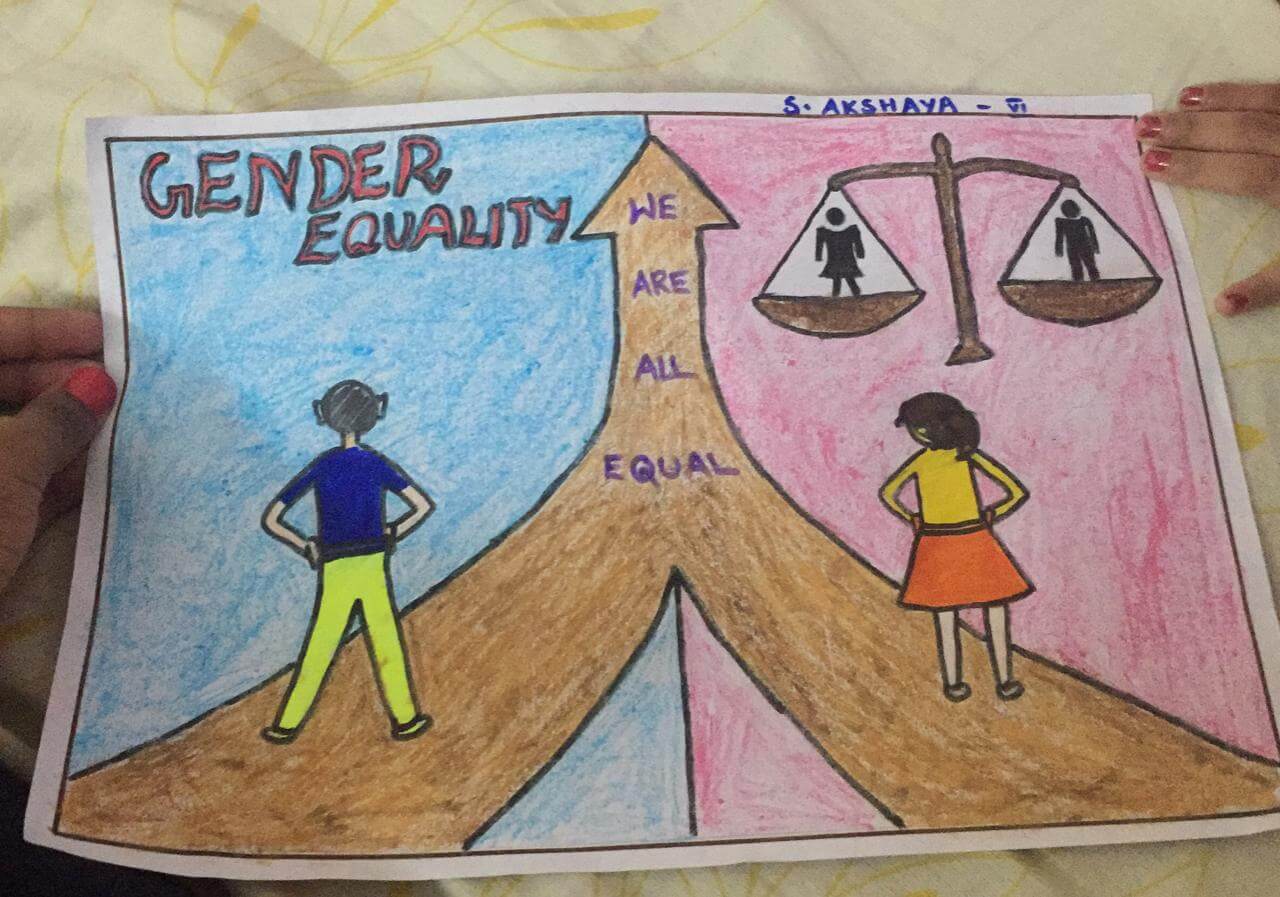 S. AKSHAYA - VI
GENDER
EQUALITY
WE
ARE
ALL
EQUAL